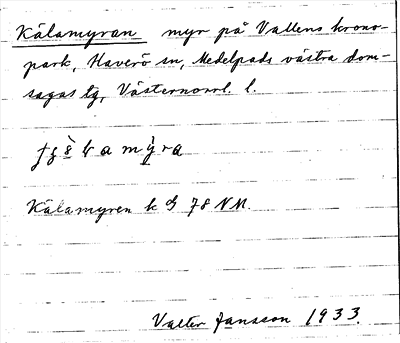 Kälamyran myr på Vallens krono-
park, Haverö sn, Medelpads västra dom-
sagas tg, Västernorrl. l.
Kälamyren k bl 78 NV.
Valter Jansson 1933.